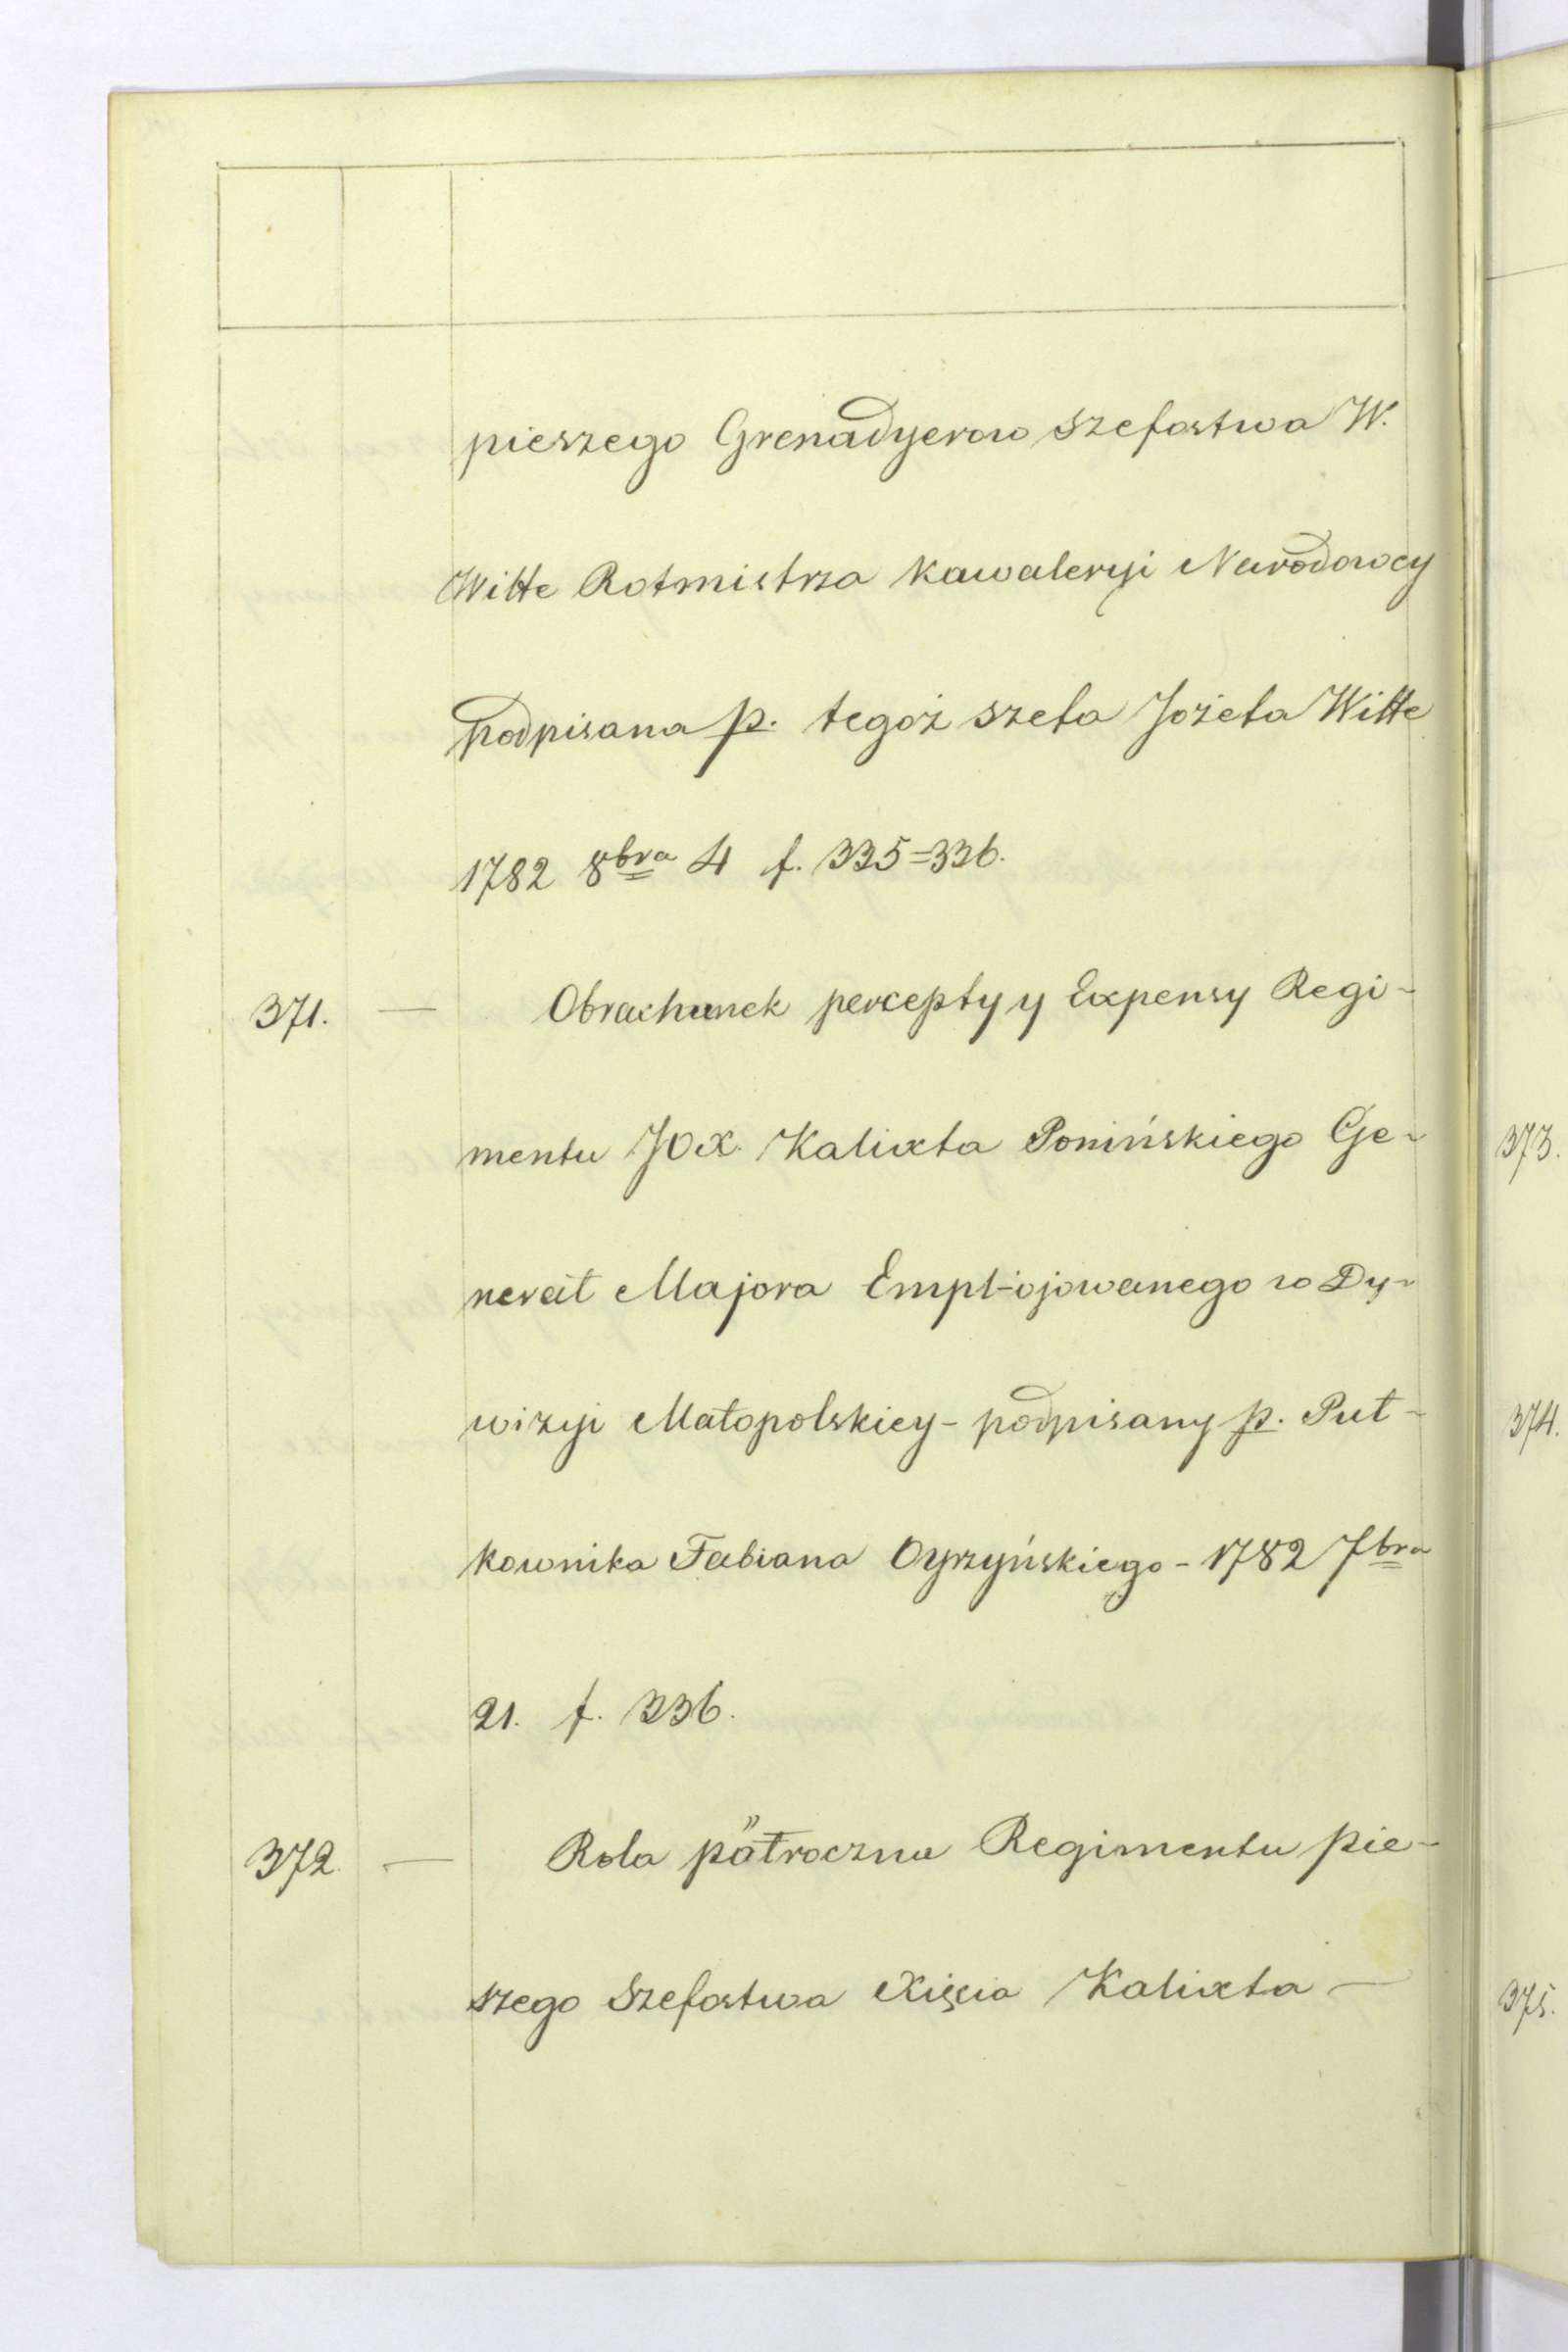 pieszego Grenadyerow szefostwa W.
Witte Rotmistrza kawaleryi Narodowey
podpisana p. tegoż szefa Jozefa Witte
1782 8bra 4 f. 335=336.
371. — Obrachunek percepty y Expensy Regi-
mentu JOX. Kalixta Ponińskiego Ge-
nerał Majora Empl-ojowanego w Dy-
wizyi Małopolskiey - podpisany p. Puł-
kownika Fabiana Oyrzyńskiego - 1782 7bra
21. f. 336.
372 — Rola półroczna Regimentu pie-
szego Szefostwa Xięcia Kalixta —
373.
374.
375.